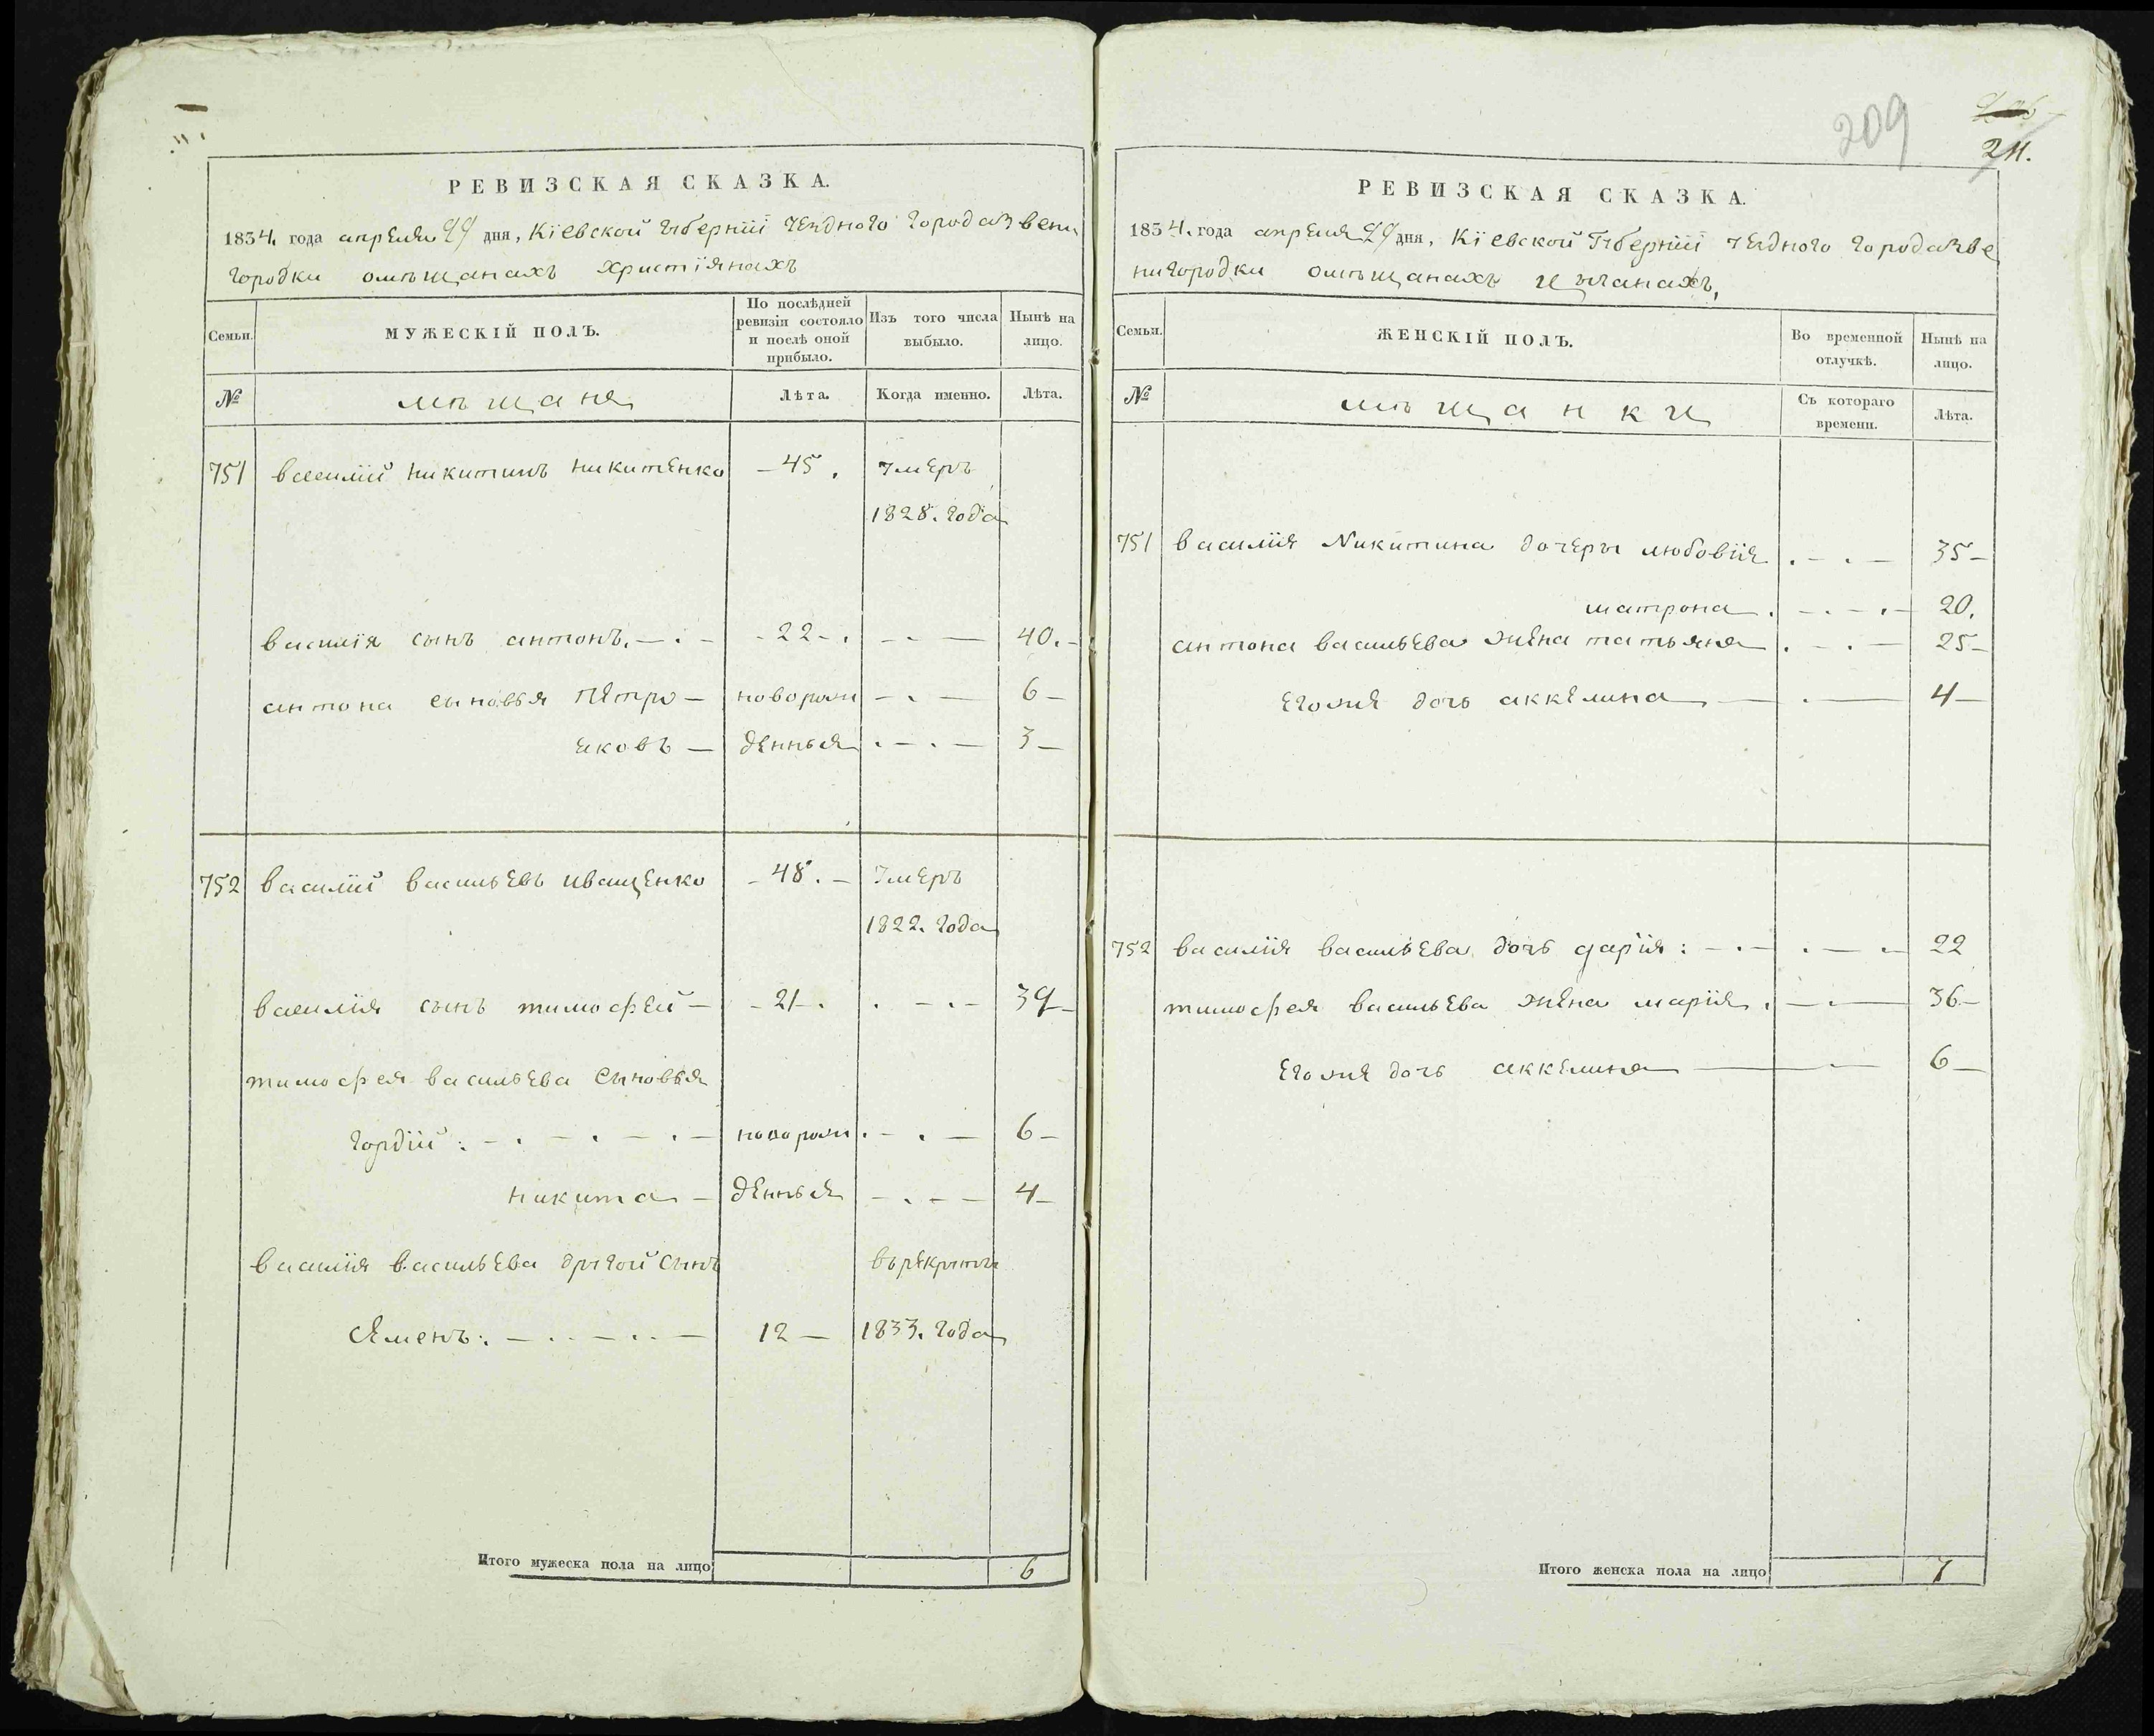 209
211.
РЕВИЗСКАЯ СКАЗКА.
1834. года апреля 29 дня, Кіевской губерніи уезднаго города Звени
городки о мѣщанахъ христіянахъ
Семьи. МУЖЕСКІЙ ПОЛЪ. По послѣдней ревизіи состояло и послѣ оной прибыло. Изъ того числа выбыло. Нынѣ на лицо.
№ мѣщане Лѣта. Когда именно. Лѣта.
751 василий никитинъ никитенко 45. умеръ
1828. года
василия сынъ антонъ. 22 40.
антона сыновья петро новорож 6
яковъ денныя 3
752 василий васильевъ иващенко 48. умеръ
1822. года
василия сынъ тимофей 21. 39
тимофея васильева сыновья
гордій: новорож 6
никита денныя 4
василия васильева другой сынъ въ рекруты
семенъ: 12 1833. года
Итого мужеска пола на лицо 6
РЕВИЗСКАЯ СКАЗКА.
1834. года апреля 29 дня, Кіевской Губерніи уезднаго города Зве
нигородки о мѣщанахъ
Семьи. ЖЕНСКІЙ ПОЛЪ. Во временной отлучкѣ. Нынѣ на лицо.
№ мѣщанки Съ котораго времени. Лѣта.
751 василія Никитина дочеры любовія 35
матрона. 20.
антона васильева жена татьяна 25
егоже дочь аккелина 4
752 василія васильева дочь дарія: 22
тимофея васильева жена марія. 36
егоже дочь аккелина 6
Итого женска пола на лицо 7